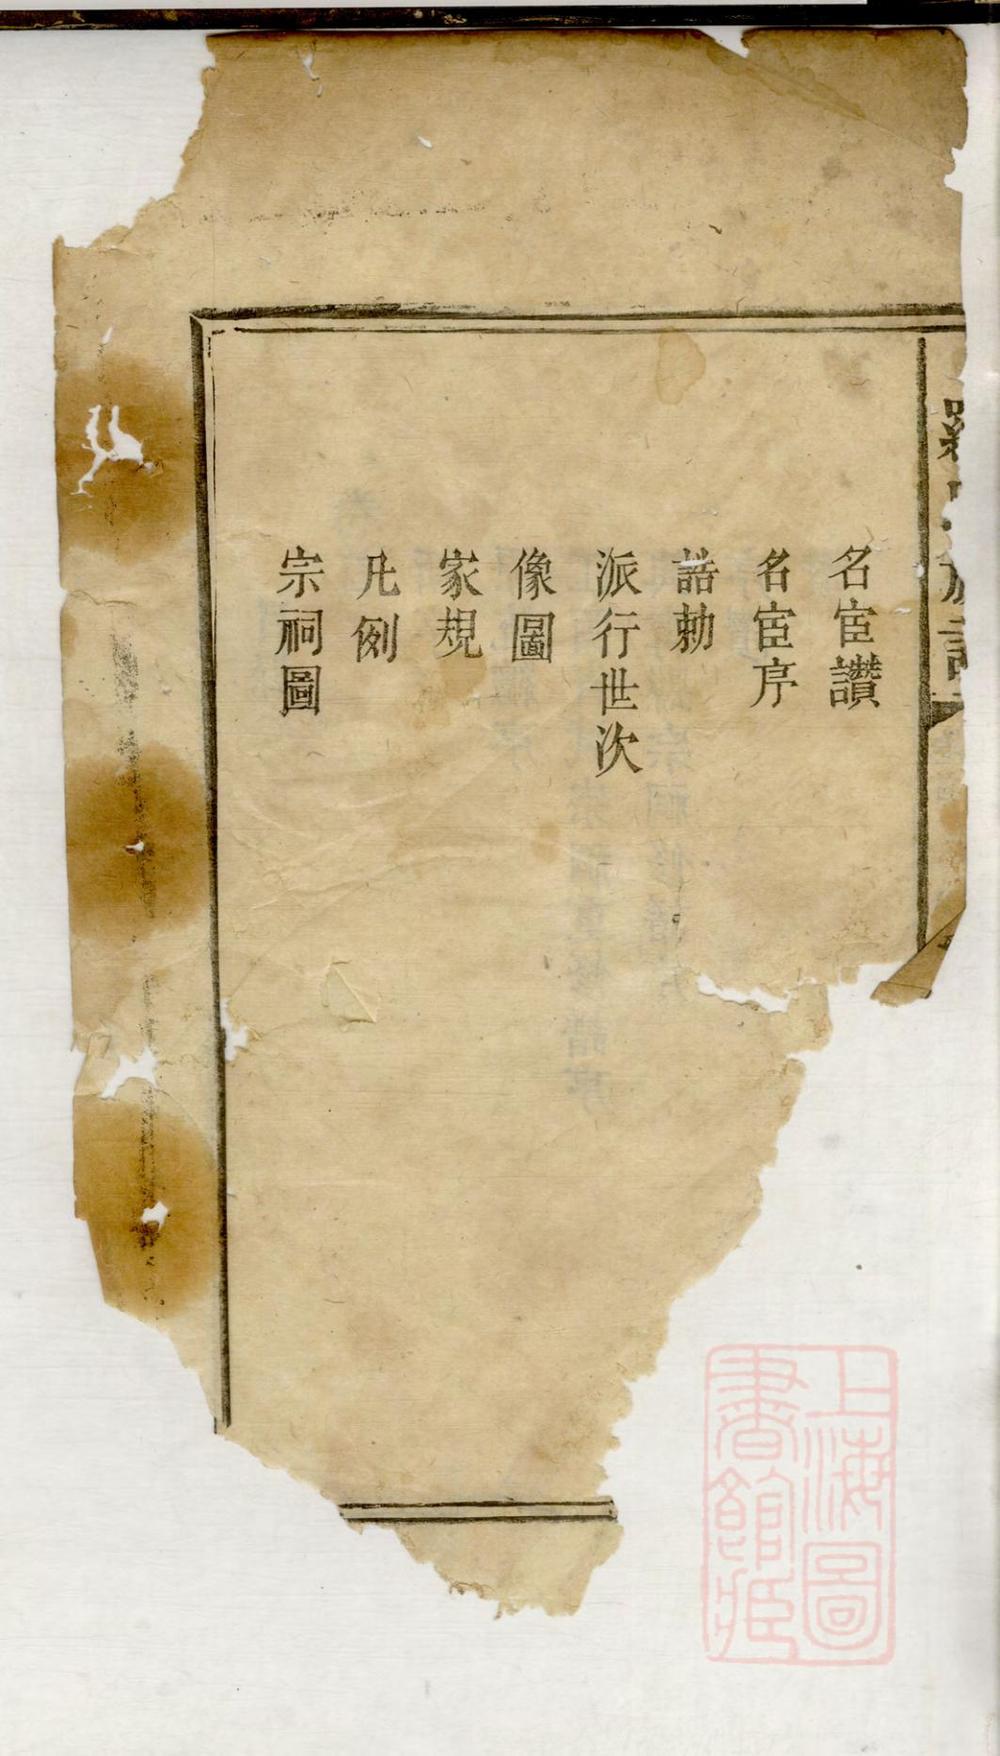 名宦讚
名宦序
誥勅
派行世次
像圖
家規
凡例
宗祠圖
上海圖
書館藏